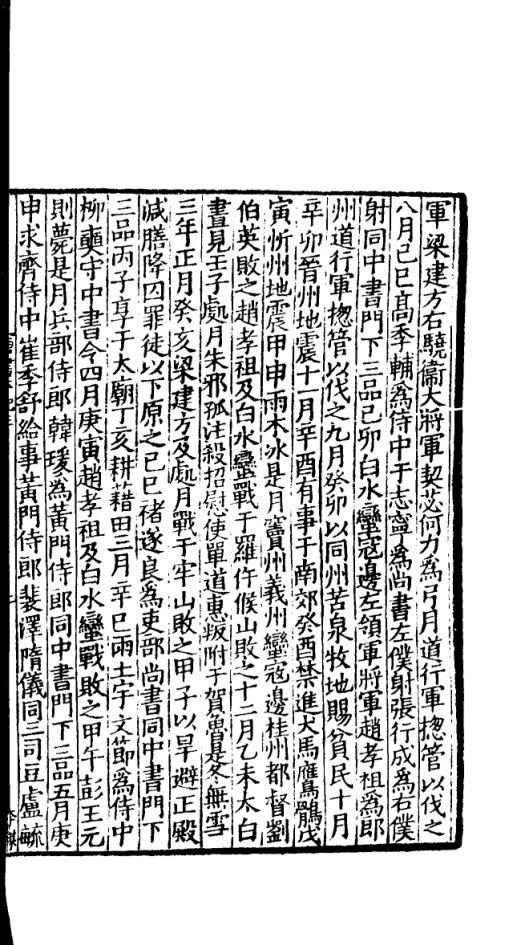 軍梁建方右驍衞大將軍契苾何力為弓月道行軍揔管以伐之
八月己巳髙季輔為侍中于志寧為尚書左僕射張行成為右僕
射同中書門下三品己卯白水蠻寇邊左領軍將軍趙孝祖為郎
州道行軍揔管以伐之九月癸卯以同州苦泉牧地賜貧民十月
辛卯晉州地震十一月辛酉有事于南郊癸酉禁進犬馬鷹鶻戊
寅忻州地震甲申雨木冰是月竇州義州蠻寇邊桂州都督劉
伯英敗之趙孝祖及白水蠻戰于羅仵候山敗之十二月乙未太白
晝見壬子處月朱邪孤注殺招慰使單道惠叛附于賀魯是冬無雪
三年正月癸亥梁建方及處月戰于牢山敗之甲子以旱避正殿
減膳降囚罪徒以下原之己巳褚遂良為吏部尚書同中書門下
三品丙子享于太廟丁亥耕藉田三月辛巳雨土宇文節為侍中
柳奭守中書令四月庚寅趙孝祖及白水蠻戰敗之甲午彭王元
則薨是月兵部侍郎韓瑗為黃門侍郎同中書門下三品五月庚
申求齊侍中崔季舒給事黃門侍郎裴澤隋儀同三司豆盧毓